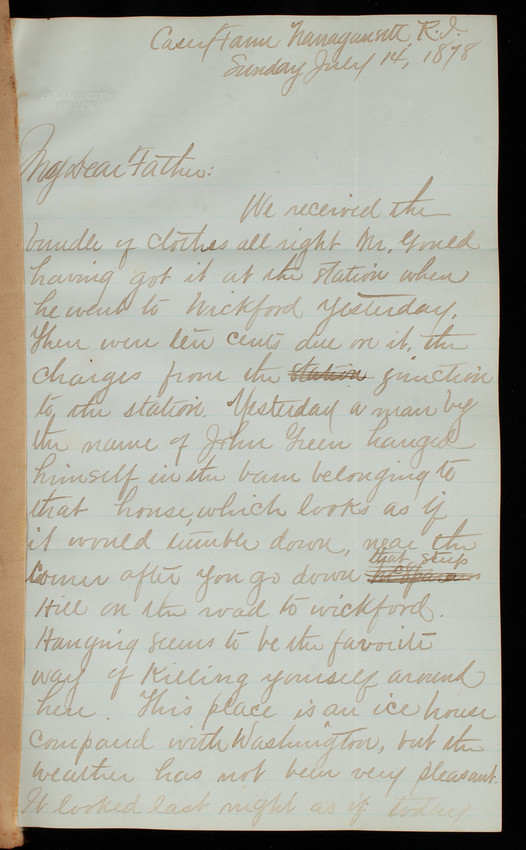 Casey Farm Narragansett, R.I.
Sunday July 14, 1878
My Dear Father:
We received the
bundle of clothes all right Mr. Gould
having got it at the station when
he went to Wickford yesterday.
There were ten cents due on it, the
charges from the station junction
to the station. Yesterday a man by
the name of John Green hanged
himself in the barn belonging to
that house, which looks as if
it would tumble down, near the
that steep
corner after you go down
Hill on the road to wickford.
Hanging seems to be the favorite
way of Killing yourself around
here. This place is an ice house
compared with Washington, but the
weather has not been very pleasant.
It looked last night as if today